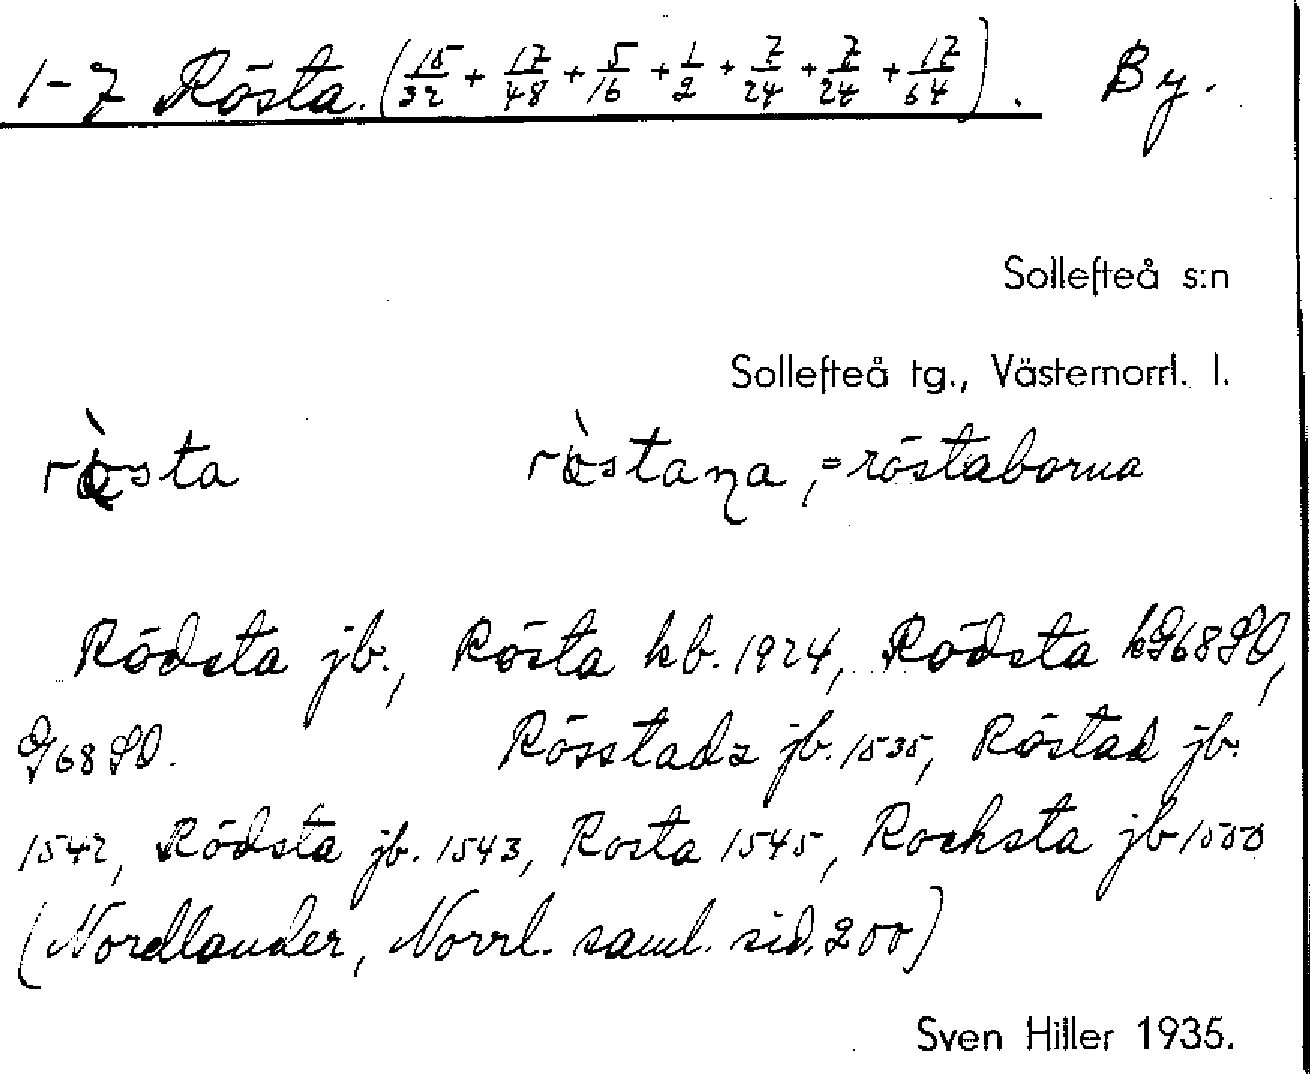 1-7 Rösta. (15/32 + 17/48 + 5/16 + 1/2 + 7/24 + 7/24 + 17/64). By.
Sollefteå s:n
Sollefteå tg., Västernorrl. l.
= röstaborna
Rödsta jb., Rösta kb. 1924, Rödsta kG68SO,
G68SO. Rösstadz jb. 1535, Röstad jb.
1542, Rödsta jb. 1543, Rosta 1545, Rochsta jb 1550
(Nordlander, Norrl. saml. sid. 200)
Sven Hiller 1935.